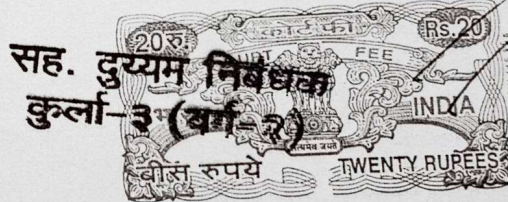 20रु. कोर्ट फी Rs.20
COURT FEE
सह. दुय्यम निबंधक
INDIA
कुर्ला-३ (वर्ग-२)
सत्यमेव जयते
बीस रुपये TWENTY RUPEES